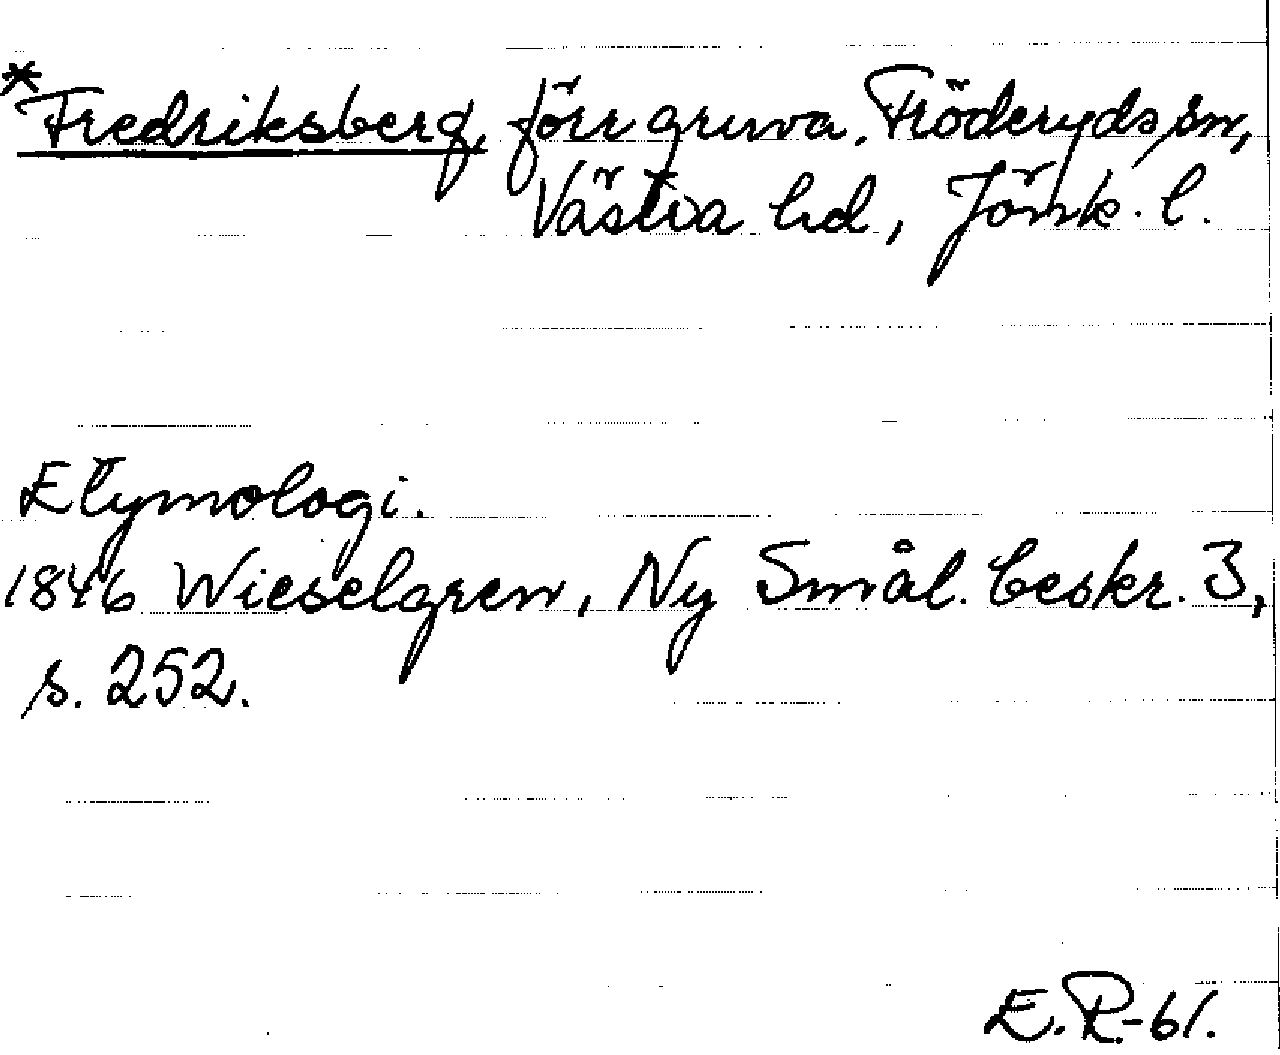 *Fredriksberg, förr gruva. Fröderyds sn,
Västra hd, Jönk. l.
Etymologi.
1846 Wieselgren, Ny Smål. beskr. 3,
s. 252.
E. R-61.